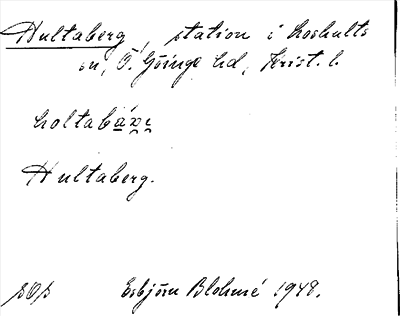 Hultaberg, station i Loshults
sn, Ö. Göinge hd, Krist. l.
Hultaberg.
Esbjörn Blohmé 1948.